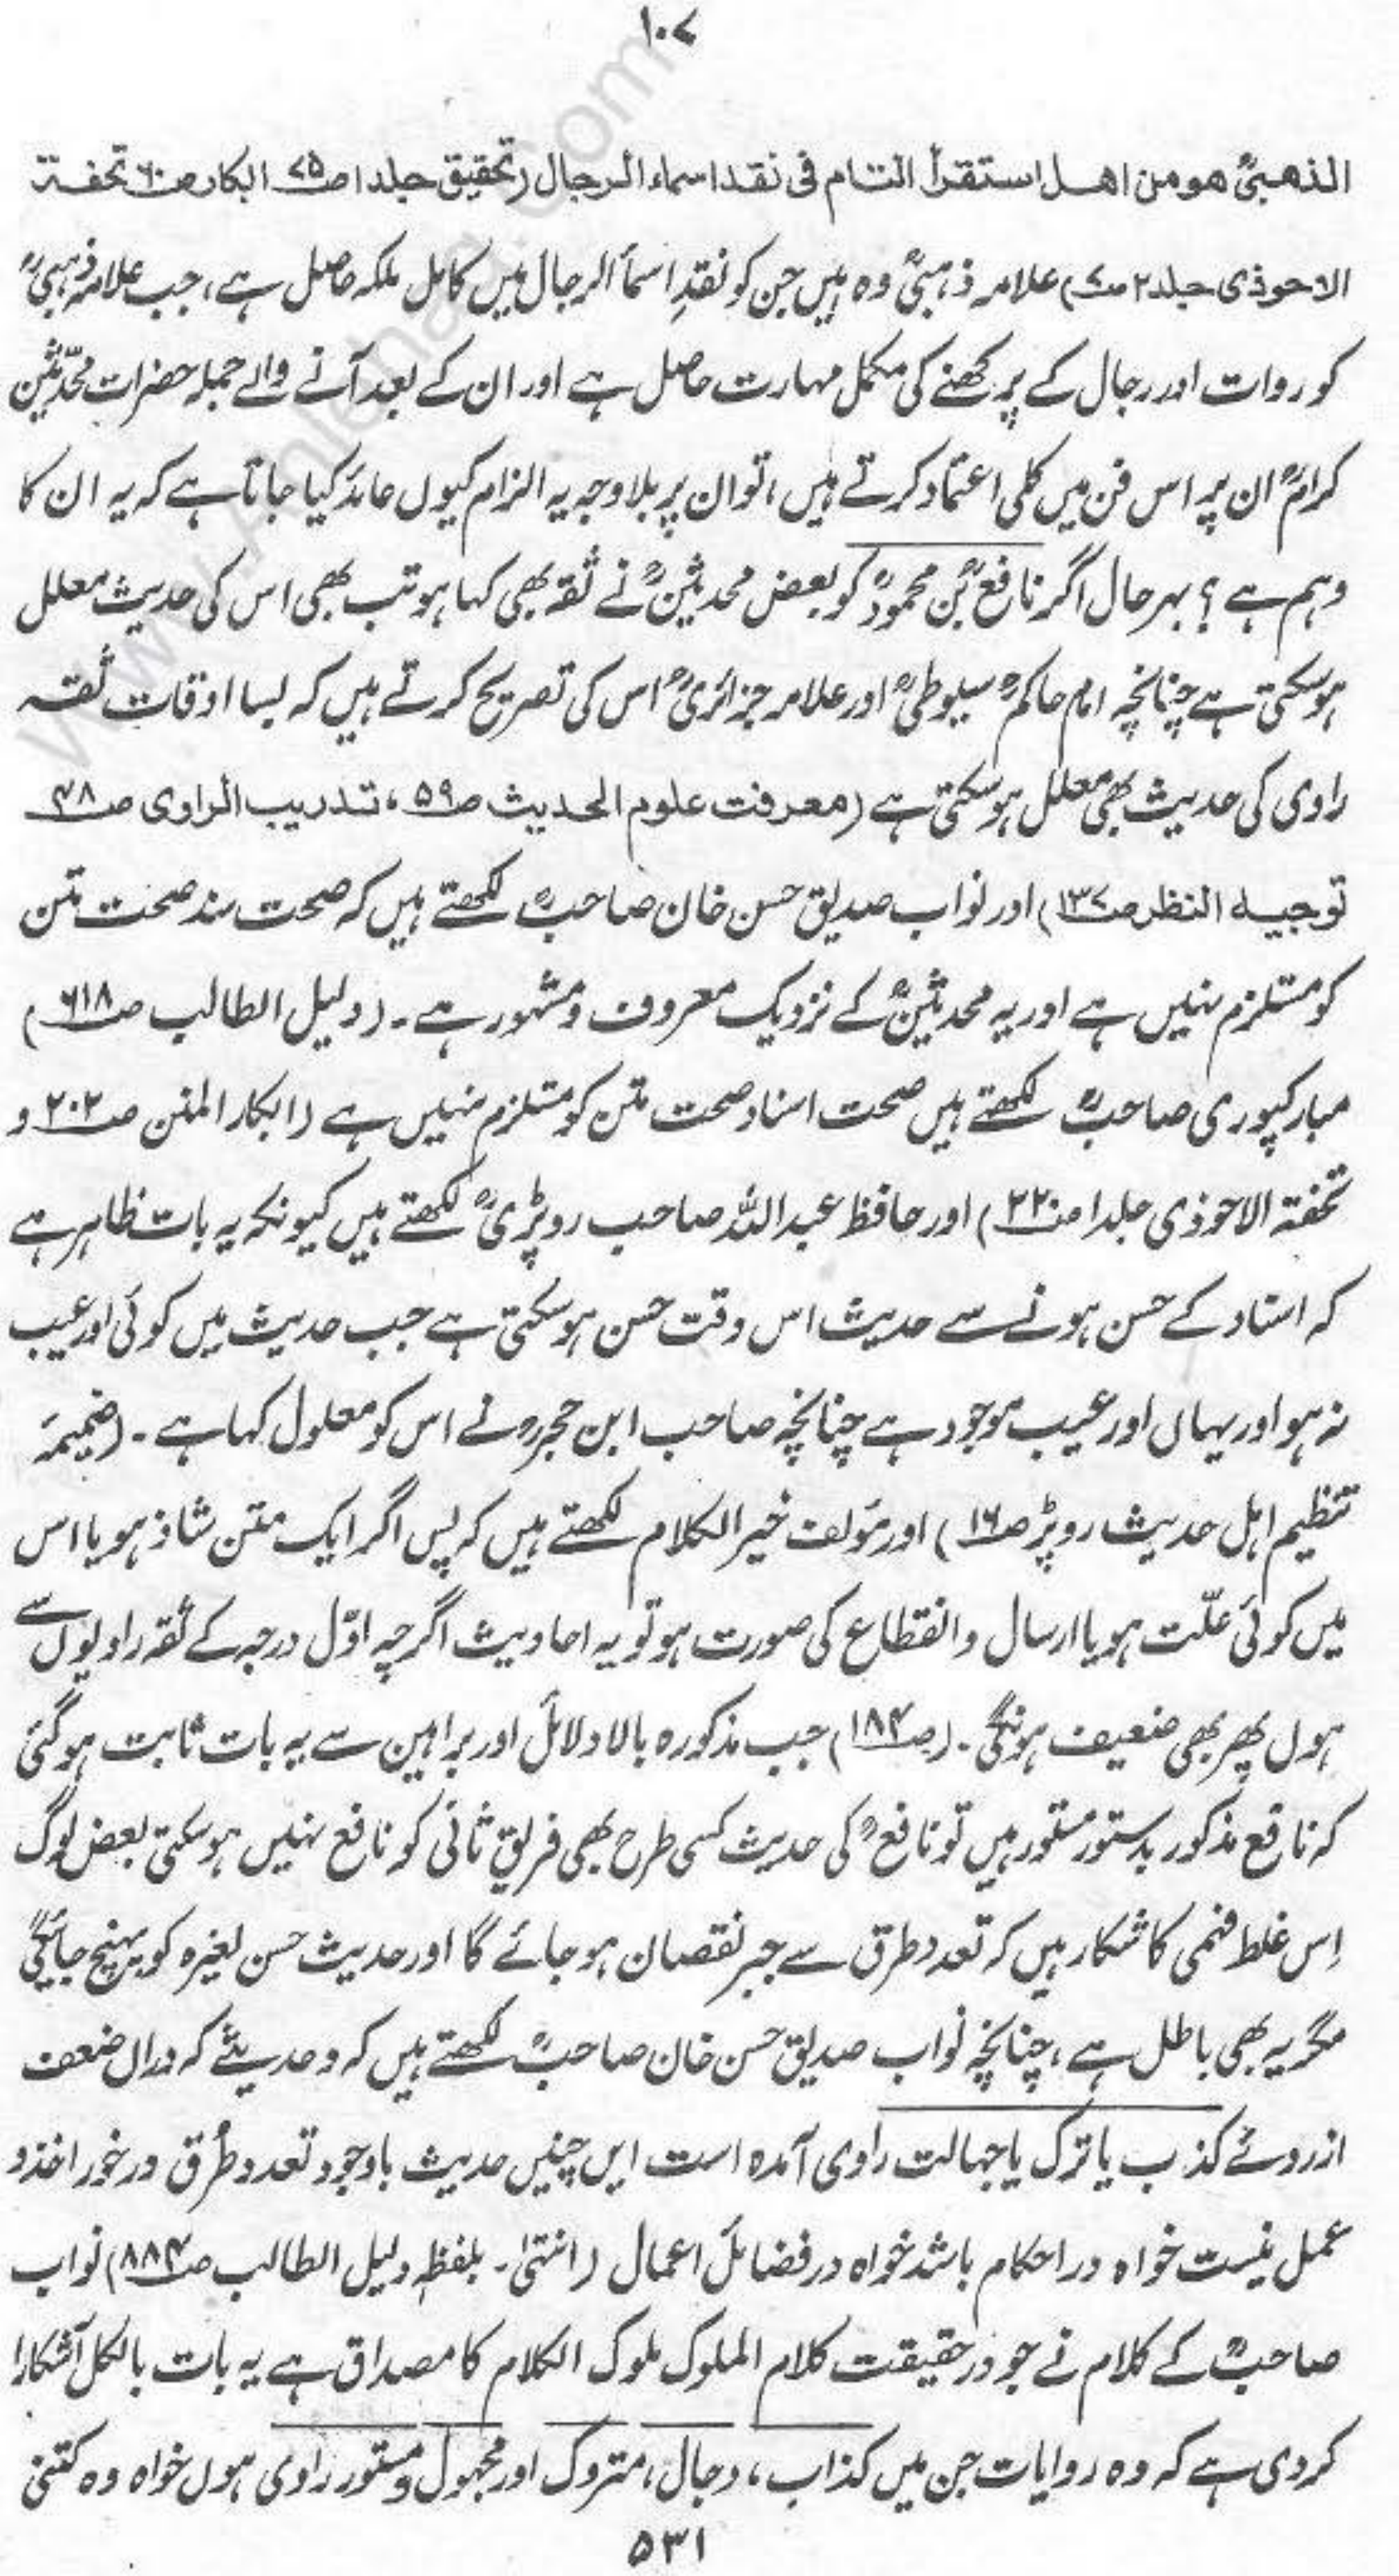 ۱۰۷
الذھبیؒ ھو من اھل استقرأ التام فی نقد اسماء الرجال (تحقیق جلد ۱ ص۷۵ ابکار ص۶۰ تحفۃ
الاحوذی جلد ۲ ص) علامہ ذہبیؒ وہ ہیں جن کو نقدِ اسمأ الرجال میں کامل ملکہ حاصل ہے، جب علامہ ذہبیؒ
کو روات اور رجال کے پرکھنے کی مکمل مہارت حاصل ہے اور ان کے بعد آنے والے جملہ حضرات محدّثین
کرامؒ ان پر اس فن میں کلی اعتماد کرتے ہیں، تو ان پر بلاوجہ یہ الزام کیوں عائد کیا جاتا ہے کہ یہ ان کا
وہم ہے؟ بہرحال اگر نافعؒ بن محمودؒ کو بعض محدثینؒ نے ثقہ بھی کہا ہو تب بھی اس کی حدیث معلل
ہو سکتی ہے چنانچہ امام حاکمؒ سیوطیؒ اور علامہ جزائریؒ اس کی تصریح کرتے ہیں کہ بسا اوقات ثقہ
راوی کی حدیث بھی معلل ہو سکتی ہے (معرفت علوم الحدیث ص۵۹، تدریب الراوی ص۴۸
توجیہ النظر ص۱۳۷) اور نواب صدیق حسن خان صاحبؒ لکھتے ہیں کہ صحت سند صحت متن
کو مستلزم نہیں ہے اور یہ محدثینؒ کے نزدیک معروف و مشہور ہے۔ (دلیل الطالب ص۶۱۸)
مبارکپوری صاحبؒ لکھتے ہیں صحت اسناد صحت متن کو مستلزم نہیں ہے (ابکار المنن ص۲۰۲ و
تحفۃ الاحوذی جلد ۱ ص۲۲) اور حافظ عبداللہ صاحب روپڑیؒ لکھتے ہیں کیونکہ یہ بات ظاہر ہے
کہ اسناد کے حسن ہونے سے حدیث اس وقت حسن ہو سکتی ہے جب حدیث میں کوئی اور عیب
نہ ہو اور یہاں اور عیب موجود ہے چنانچہ صاحب ابن حجرؒ نے اس کو معلول کہا ہے۔ (ضمیمہ
تنظیم اہل حدیث روپڑ ص۱۶) اور مؤلف خیر الکلام لکھتے ہیں کہ پس اگر ایک متن شاذ ہو یا اس
میں کوئی علّت ہو یا ارسال و انقطاع کی صورت ہو تو یہ احادیث اگرچہ اوّل درجہ کے ثقہ راویوں سے
ہوں پھر بھی ضعیف ہونگی۔ (ص۱۸۴) جب مذکورہ بالا دلائل اور براہین سے یہ بات ثابت ہو گئی
کہ نافع مذکور بدستور مستور ہیں تو نافعؒ کی حدیث کسی طرح بھی فریقِ ثانی کو نافع نہیں ہو سکتی بعض لوگ
اِس غلط فہمی کا شکار ہیں کہ تعدد طرق سے جبر نقصان ہو جائے گا اور حدیث حسن لغیرہ کو پہنچ جائیگی
مگر یہ بھی باطل ہے، چنانچہ نواب صدیق حسن خان صاحبؒ لکھتے ہیں کہ و حدیثے کہ دراں ضعف
ازروئے کذب یا ترک یا جہالت راوی آمدہ است ایں چنیں حدیث باوجود تعدد طُرق درخور اخذ و
عمل نیست خواہ در احکام باشد خواہ در فضائل اعمال (انتہیٰ۔ بلفظہٖ دلیل الطالب ص۸۸۴) نواب
صاحبؒ کے کلام نے جو درحقیقت کلام الملوک ملوک الکلام کا مصداق ہے یہ بات بالکل آشکارا
کر دی ہے کہ وہ روایات جن میں کذاب، دجال، متروک اور مجہول و مستور راوی ہوں خواہ وہ کتنی
۵۳۱
www.Ahlehaq.Com